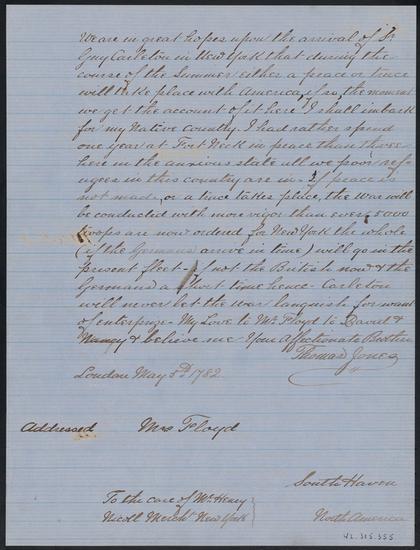 We are in great hopes upon the arrival of Sr
Guy Carleton in New York that during the
course of the Summer either a peace or truce
will take place with America, if so, the moment
we get the account of it here I shall imbark
for my Native Country. I had rather spend
one year at Fort Neck in peace than three
here in the anxious state all we poor refu-
gees in this country are in - If peace is
not made, or a truce takes place, the War will
be conducted with more vigor than ever 5000
troops are now ordered for New York the whole
(if the Germans arrive in time) will go in the
present fleet - if not the British now & the
Germans a short time hence - Carleton
will never let the War languish for want
of enterprize - My Love to Mr Floyd to David &
Nancy & believe me - Your Affectionate Brother
Thomas Jones
London May 8th 1782
Addressed Mrs Floyd
South Haven
To the care of Mr Henry
Nicoll Mercht New York
North America
42.315.355